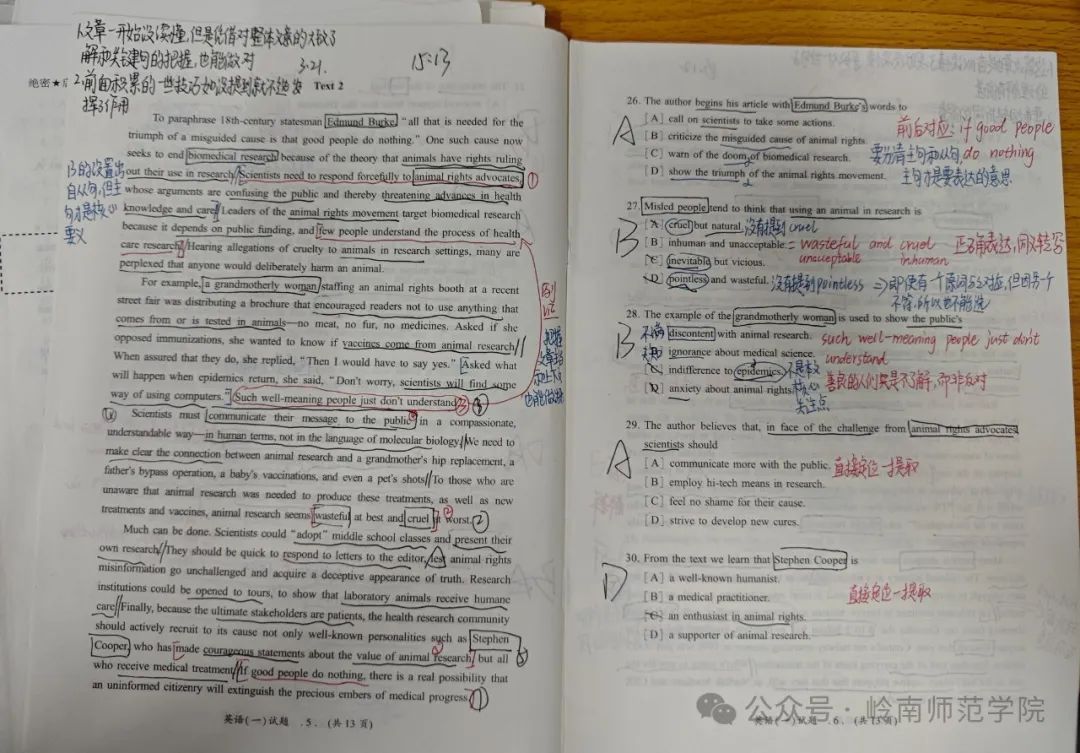 1.文章一开始没读懂,但是凭借对整体文章的大致了
解和关键句的把握,也能做对
3.21.
15:13
2.前面积累的一些技巧如没提到就不能选
发挥了作用
绝密★
Text 2
To paraphrase 18th-century statesman Edmund Burke, “all that is needed for the
triumph of a misguided cause is that good people do nothing.” One such cause now
seeks to end biomedical research because of the theory that animals have rights ruling
out their use in research. Scientists need to respond forcefully to animal rights advocates,
whose arguments are confusing the public and thereby threatening advances in health
knowledge and care. Leaders of the animal rights movement target biomedical research
because it depends on public funding, and few people understand the process of health
care research. Hearing allegations of cruelty to animals in research settings, many are
perplexed that anyone would deliberately harm an animal.
For example, a grandmotherly woman staffing an animal rights booth at a recent
street fair was distributing a brochure that encouraged readers not to use anything that
comes from or is tested in animals—no meat, no fur, no medicines. Asked if she
opposed immunizations, she wanted to know if vaccines come from animal research.
When assured that they do, she replied, “Then I would have to say yes.” Asked what
will happen when epidemics return, she said, “Don't worry, scientists will find some
way of using computers.” Such well-meaning people just don't understand.
Scientists must communicate their message to the public in a compassionate,
understandable way—in human terms, not in the language of molecular biology. We need to
make clear the connection between animal research and a grandmother's hip replacement, a
father's bypass operation, a baby's vaccinations, and even a pet's shots. To those who are
unaware that animal research was needed to produce these treatments, as well as new
treatments and vaccines, animal research seems wasteful at best and cruel at worst.
Much can be done. Scientists could “adopt” middle school classes and present their
own research. They should be quick to respond to letters to the editor, lest animal rights
misinformation go unchallenged and acquire a deceptive appearance of truth. Research
institutions could be opened to tours, to show that laboratory animals receive humane
care. Finally, because the ultimate stakeholders are patients, the health research community
should actively recruit to its cause not only well-known personalities such as Stephen
Cooper, who has made courageous statements about the value of animal research, but all
who receive medical treatment. If good people do nothing, there is a real possibility that
an uninformed citizenry will extinguish the precious embers of medical progress.
B的设置出
自从句,但主
句才是核心
要义
例证
把握
也能做对
英语(一)试题 .5. (共13页)
26. The author begins his article with Edmund Burke's words to
A
[A] call on scientists to take some actions.
[B] criticize the misguided cause of animal rights.
[C] warn of the doom of biomedical research.
[D] show the triumph of the animal rights movement.
前后对应: if good people
do nothing
要分清主句和从句,
主句才是要表达的意思
27. Misled people tend to think that using an animal in research is
B
[A] cruel but natural. 没有提到 cruel
[B] inhuman and unacceptable. = wasteful and cruel 正确表达,同义转写
unaceptable inhuman
[C] inevitable but vicious.
[D] pointless and wasteful. 没有提到pointless ⇒ 即使有一个原词与之对应,但因另一个
不符,所以也不能选
28. The example of the grandmotherly woman is used to show the public's
B
[A] discontent with animal research. such well-meaning people just don't
不满
[B] ignorance about medical science. understand
无知
[C] indifference to epidemics. 不是本文
善良的人们只是不了解,而非反对
[D] anxiety about animal rights. 核心
关注点
29. The author believes that, in face of the challenge from animal rights advocates,
scientists should
A
[A] communicate more with the public. 直接定位—提取
[B] employ hi-tech means in research.
[C] feel no shame for their cause.
[D] strive to develop new cures.
30. From the text we learn that Stephen Cooper is
D
[A] a well-known humanist.
[B] a medical practitioner. 直接定位—提取
[C] an enthusiast in animal rights.
[D] a supporter of animal research.
英语(一)试题 .6. (共13页)
公众号 · 岭南师范学院